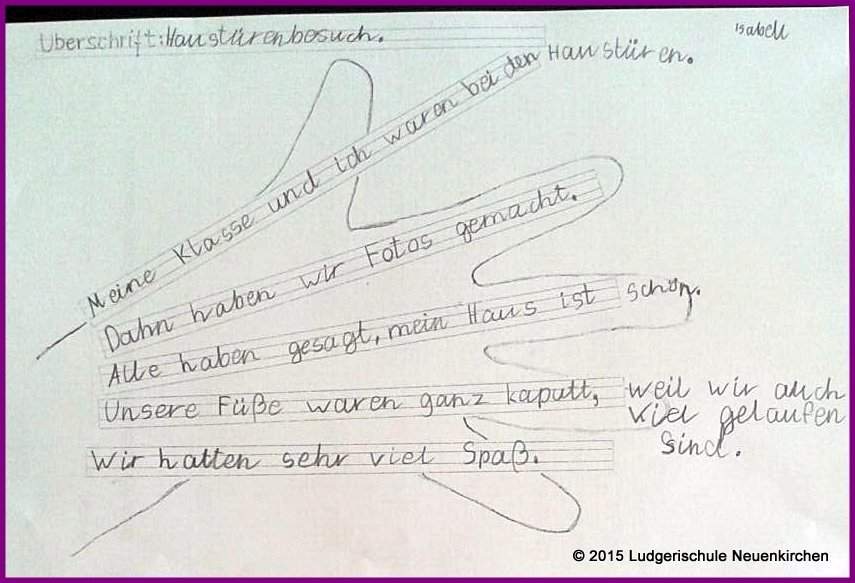 Überschrift: Haustürenbesuch.
Isabell
Meine Klasse und ich waren bei den Haustüren.
Dahn haben wir Fotos gemacht.
Alle haben gesagt, mein Haus ist schön.
Unsere Füße waren ganz kaputt, weil wir auch
viel gelaufen
sind.
Wir hatten sehr viel Spaß.
© 2015 Ludgerischule Neuenkirchen